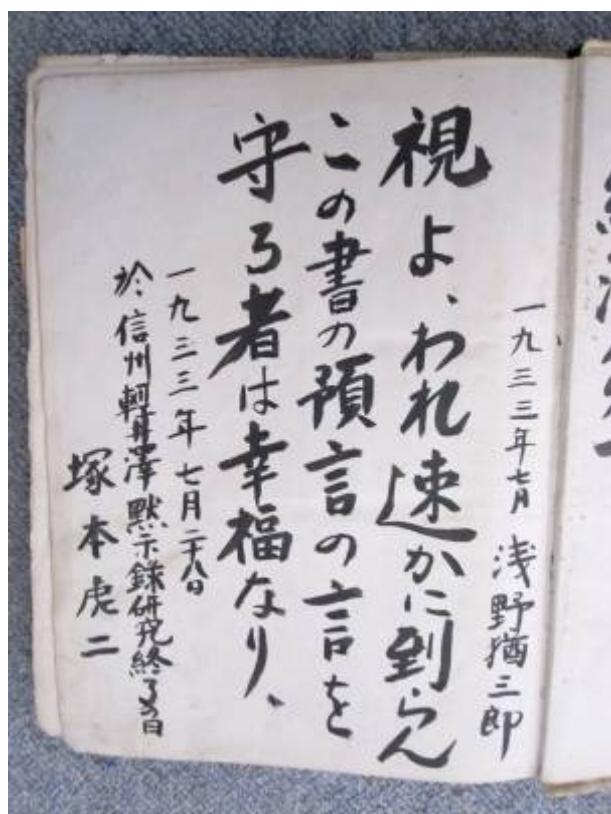 一九三三年七月 浅野猶三郎
視よ、われ速かに到らん
この書の預言の言を
守る者は幸福なり、
一九三三年七月二十八日
於信州軽井澤黙示録研究終了の日
塚本虎二